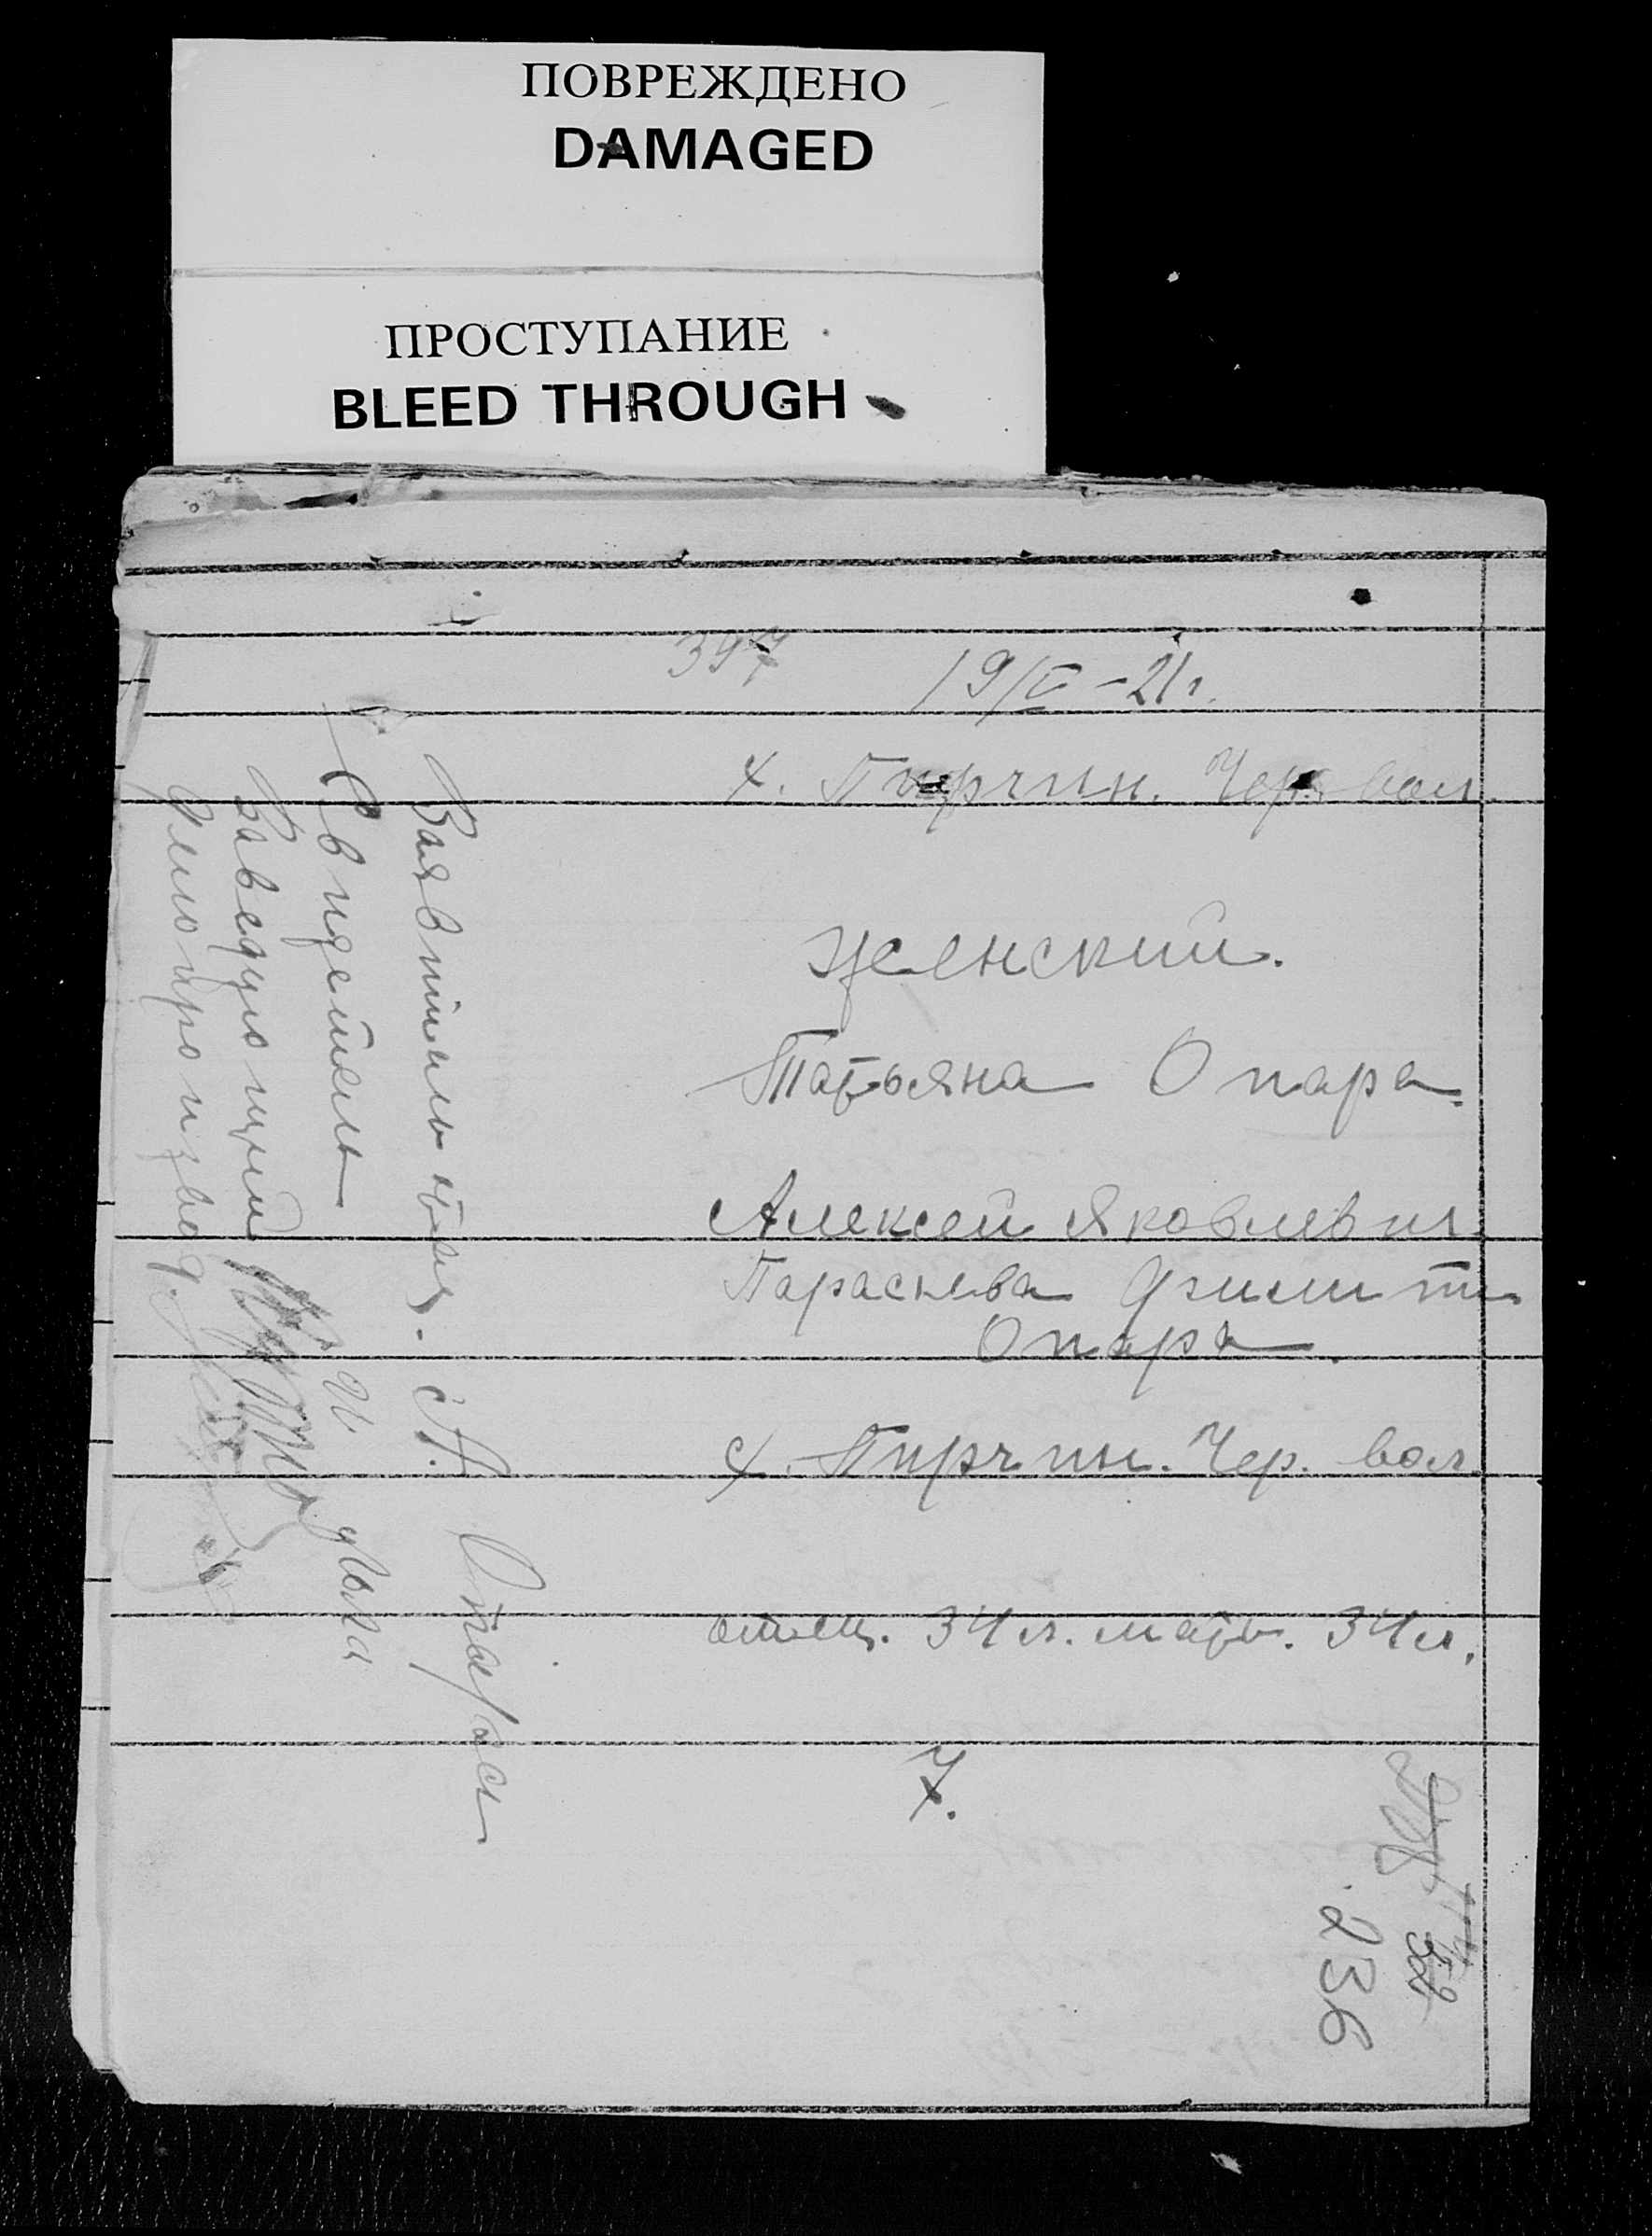 ПОВРЕЖДЕНО
DAMAGED
ПРОСТУПАНИЕ
BLEED THROUGH
397
19/II-21г.
х. Пирчин. Чер. вол
женский.
Татьяна Опара.
Алексей Яковлевич
Параскева Дмит
Опара
х. Пирчин. Чер. вол
отец. 34 л. мать. 34 л.
7.
Заявитель отец. А. Опара
Свидетель
Заведующий
Делопроизвод.
236